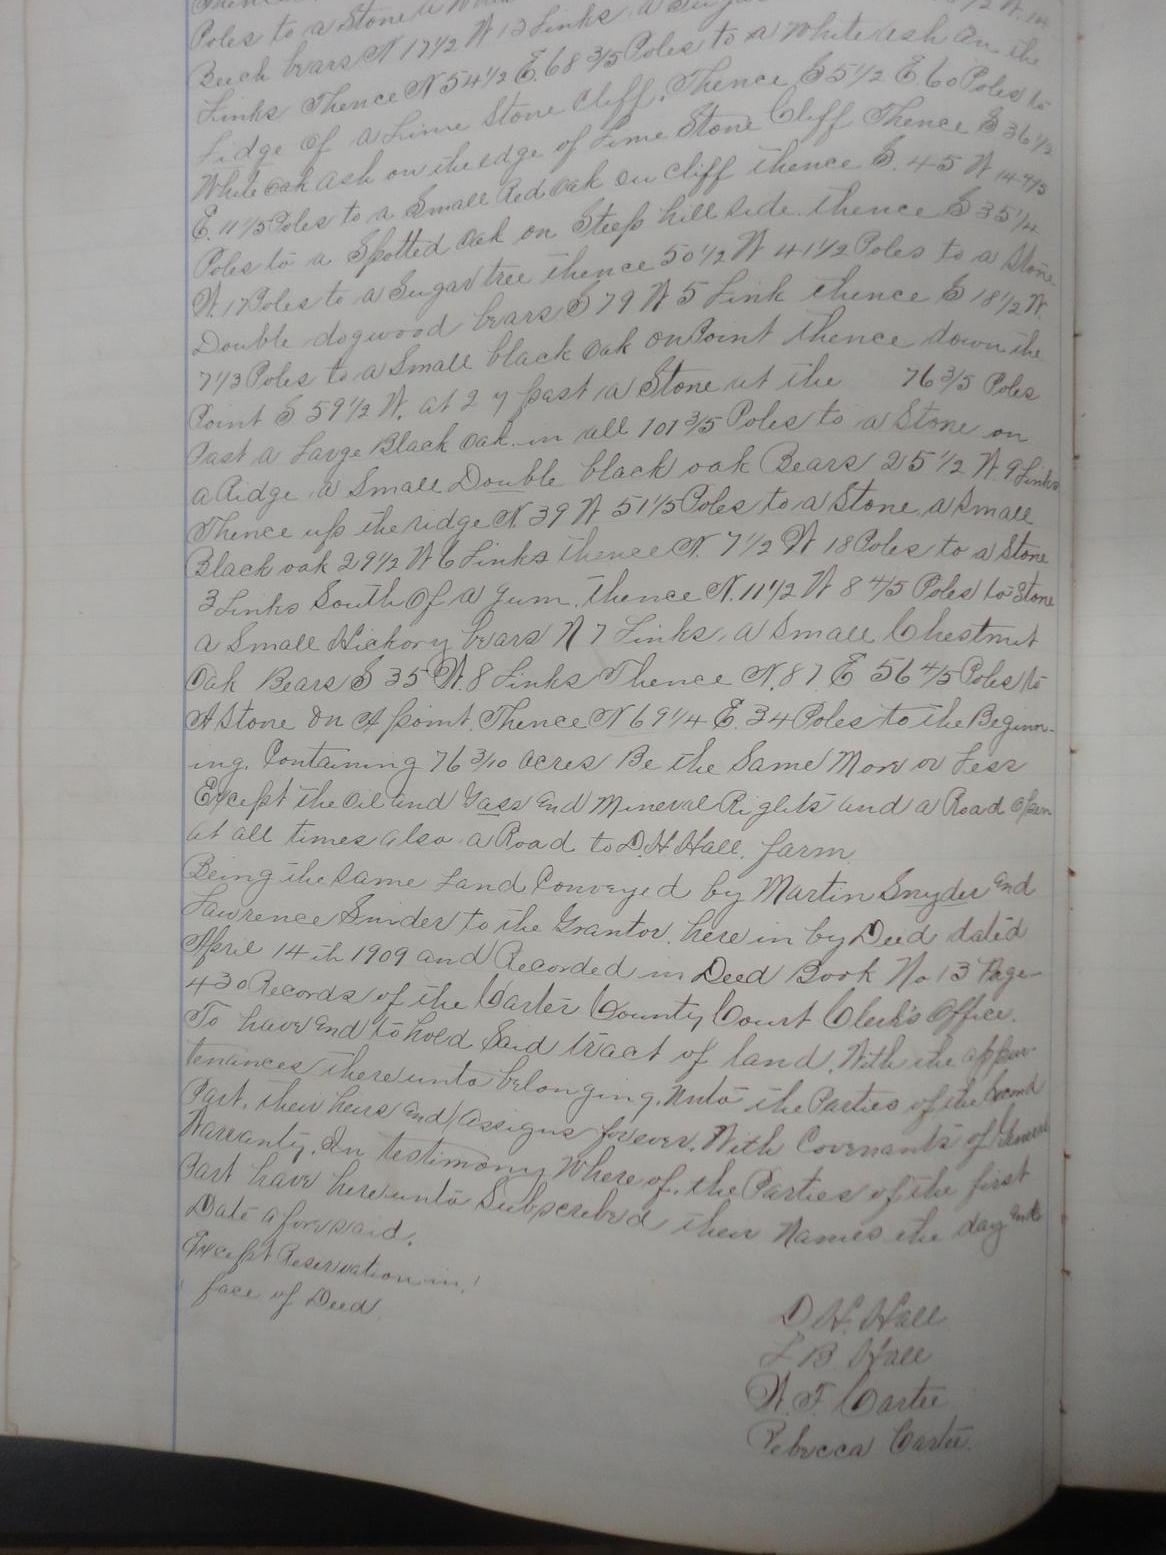 Poles to a Stone
Beech bears N 17 1/2 W 13 Links a
Links Thence N 54 1/2 E. 68 3/5 Poles to a White ash on the
Lidge of a Lime Stone Cliff. Thence S 5 1/2 E. 60 Poles to
White oak ash on the edge of Lime Stone Cliff Thence S 36 1/2
E. 11 1/5 Poles to a Small Red oak on Cliff thence S. 45 W 14 4/5
Poles to a Spotted oak on Steep hill side. thence S 35 1/4
W. 17 Poles to a Sugar tree thence 50 1/2 W 41 1/2 Poles to a Stone
Double dogwood bears S 79 W 5 Link thence S 18 1/2 W.
7 1/3 Poles to a Small black oak on Point thence down the
Point S 59 1/2 W. at 27 past a Stone at the 76 3/5 Poles
Past a Large Black oak in all 101 3/5 Poles to a Stone on
a Ridge a Small Double black oak Bears 25 1/2 W. 9 Links
Thence up the ridge N. 39 W 51 1/5 Poles to a Stone a Small
Black oak 29 1/2 W 6 Links thence N. 7 1/2 W 18 Poles to a Stone
3 Links South of a gum. thence N. 11 1/2 W 8 4/5 Poles to Stone
a Small Hickory bears N 7 Links, a Small Chestnut
Oak Bears S 35 W. 8 Links Thence N. 87 E 56 4/5 Poles to
A Stone on A point. Thence N 69 1/4 E. 34 Poles to the Beginn-
ing. Containing 76 3/10 acres Be the Same More or Less
Except the Oil and Gass and Mineral Rights and a Road open
at all times also a Road to D. H. Hall. farm.
Being the Same Land Conveyed by Martin Snyder and
Lawrence Snider to the Grantor. here in by Deed dated
April 14th 1909 and Recorded in Deed Book No 13 Page
430 Records of the Carter County Court Clerk's Office.
To have and to hold Said tract of land. With the appur-
tenances thereunto belonging. Unto the Parties of the Second
Part. their heirs and assigns forever. With Covenants of General
Warranty. In testimony Where of. the Parties of the first
Part have hereunto Subscribed their Names the day and
Date aforesaid.
Except Reservation in
face of Deed
D. H. Hall
L B Hall
W. F. Carter
Rebecca Carter